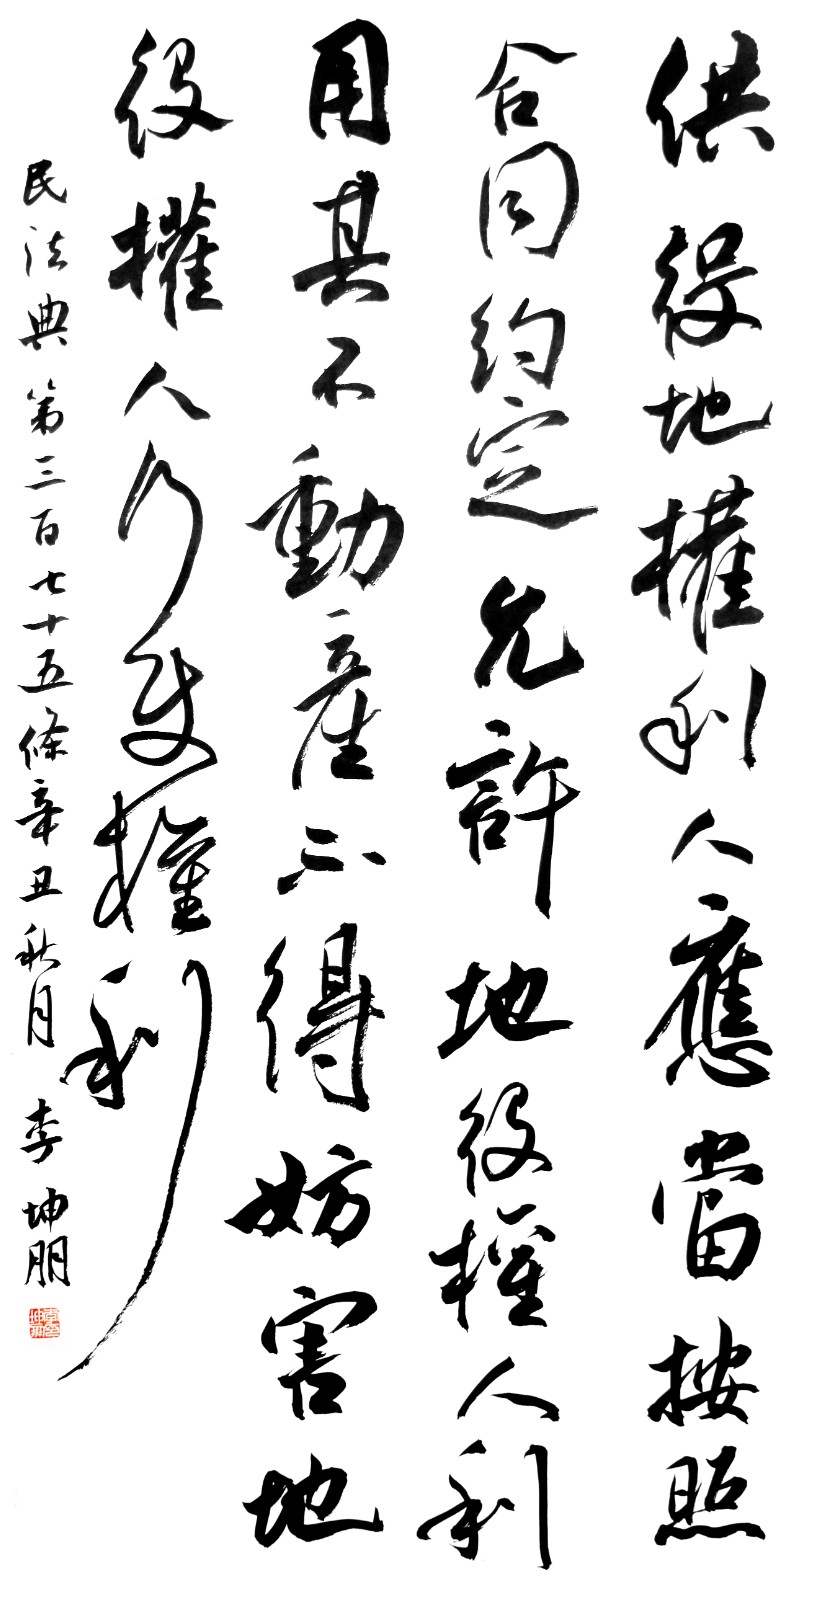 供役地權利人應當按照
合同約定允許地役權人利
用其不動產不得妨害地
役權人行使權利
民法典第三百七十五條辛丑秋月 李坤朋